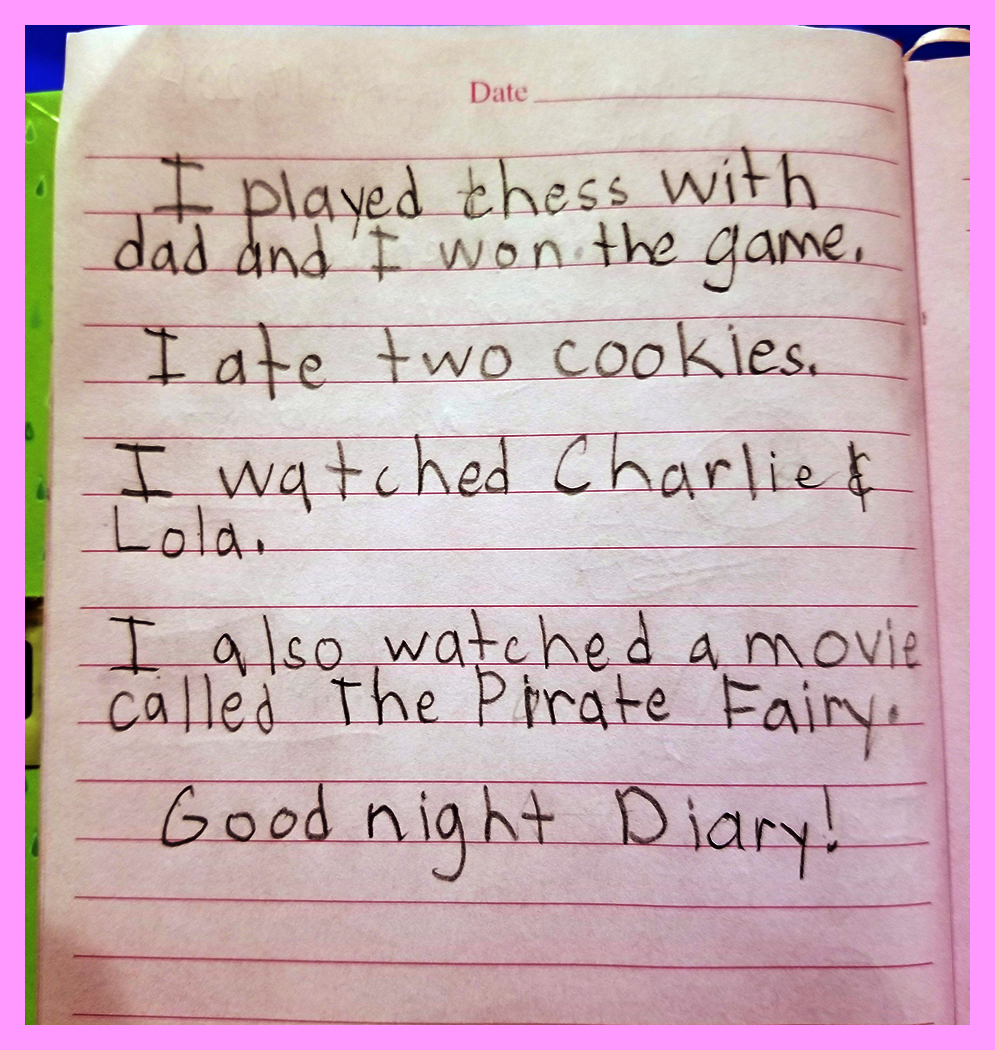 Date
I played chess with
dad and I won the game.
I ate two cookies.
I watched Charlie &
Lola.
I also watched a movie
called The Pirate Fairy.
Good night Diary!